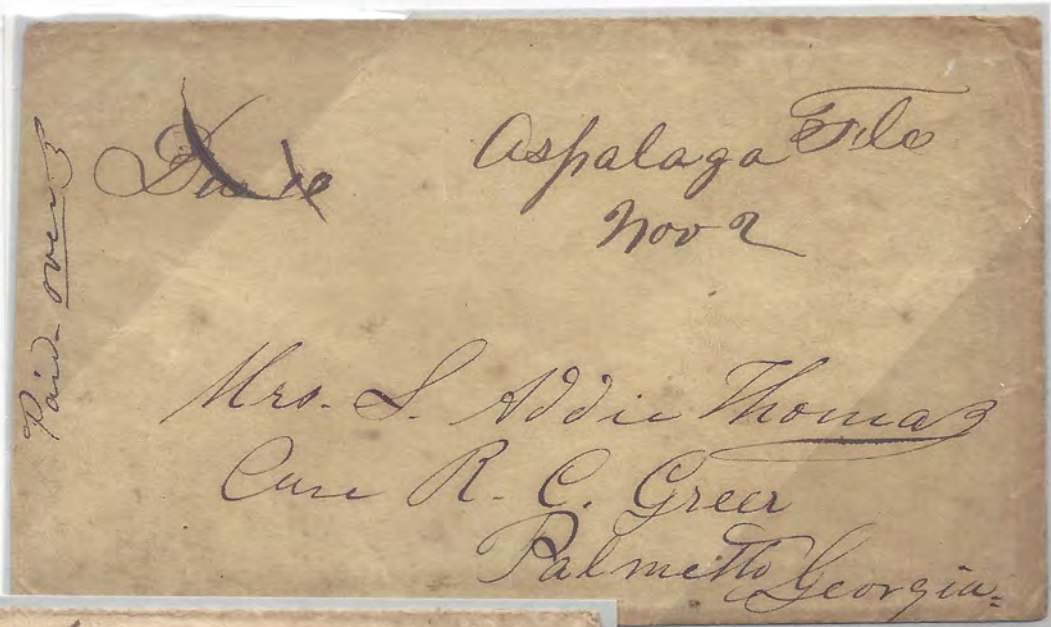 Paid over 3
Due 10
Aspalaga Fla
Nov 2
Mrs. S. Addie Thomas
Care R. C. Greer
Palmetto Georgia.